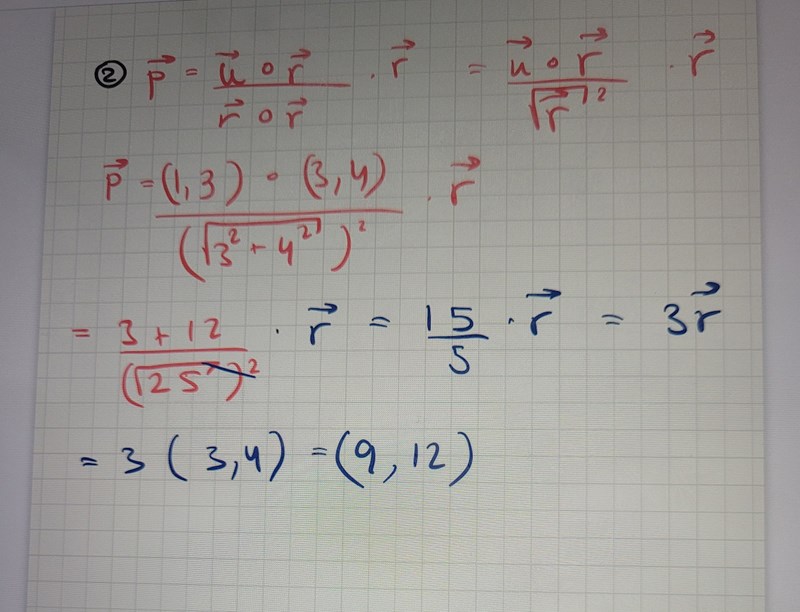 ② p⃗ = (u⃗ ∘ r⃗)/(r⃗ ∘ r⃗) · r⃗ = (u⃗ ∘ r⃗)/(√r⃗)² · r⃗
p⃗ = ((1,3) ∘ (3,4))/(√(3² + 4²))² · r⃗
= (3 + 12)/(√25)² · r⃗ = 15/5 · r⃗ = 3r⃗
= 3 (3,4) = (9, 12)